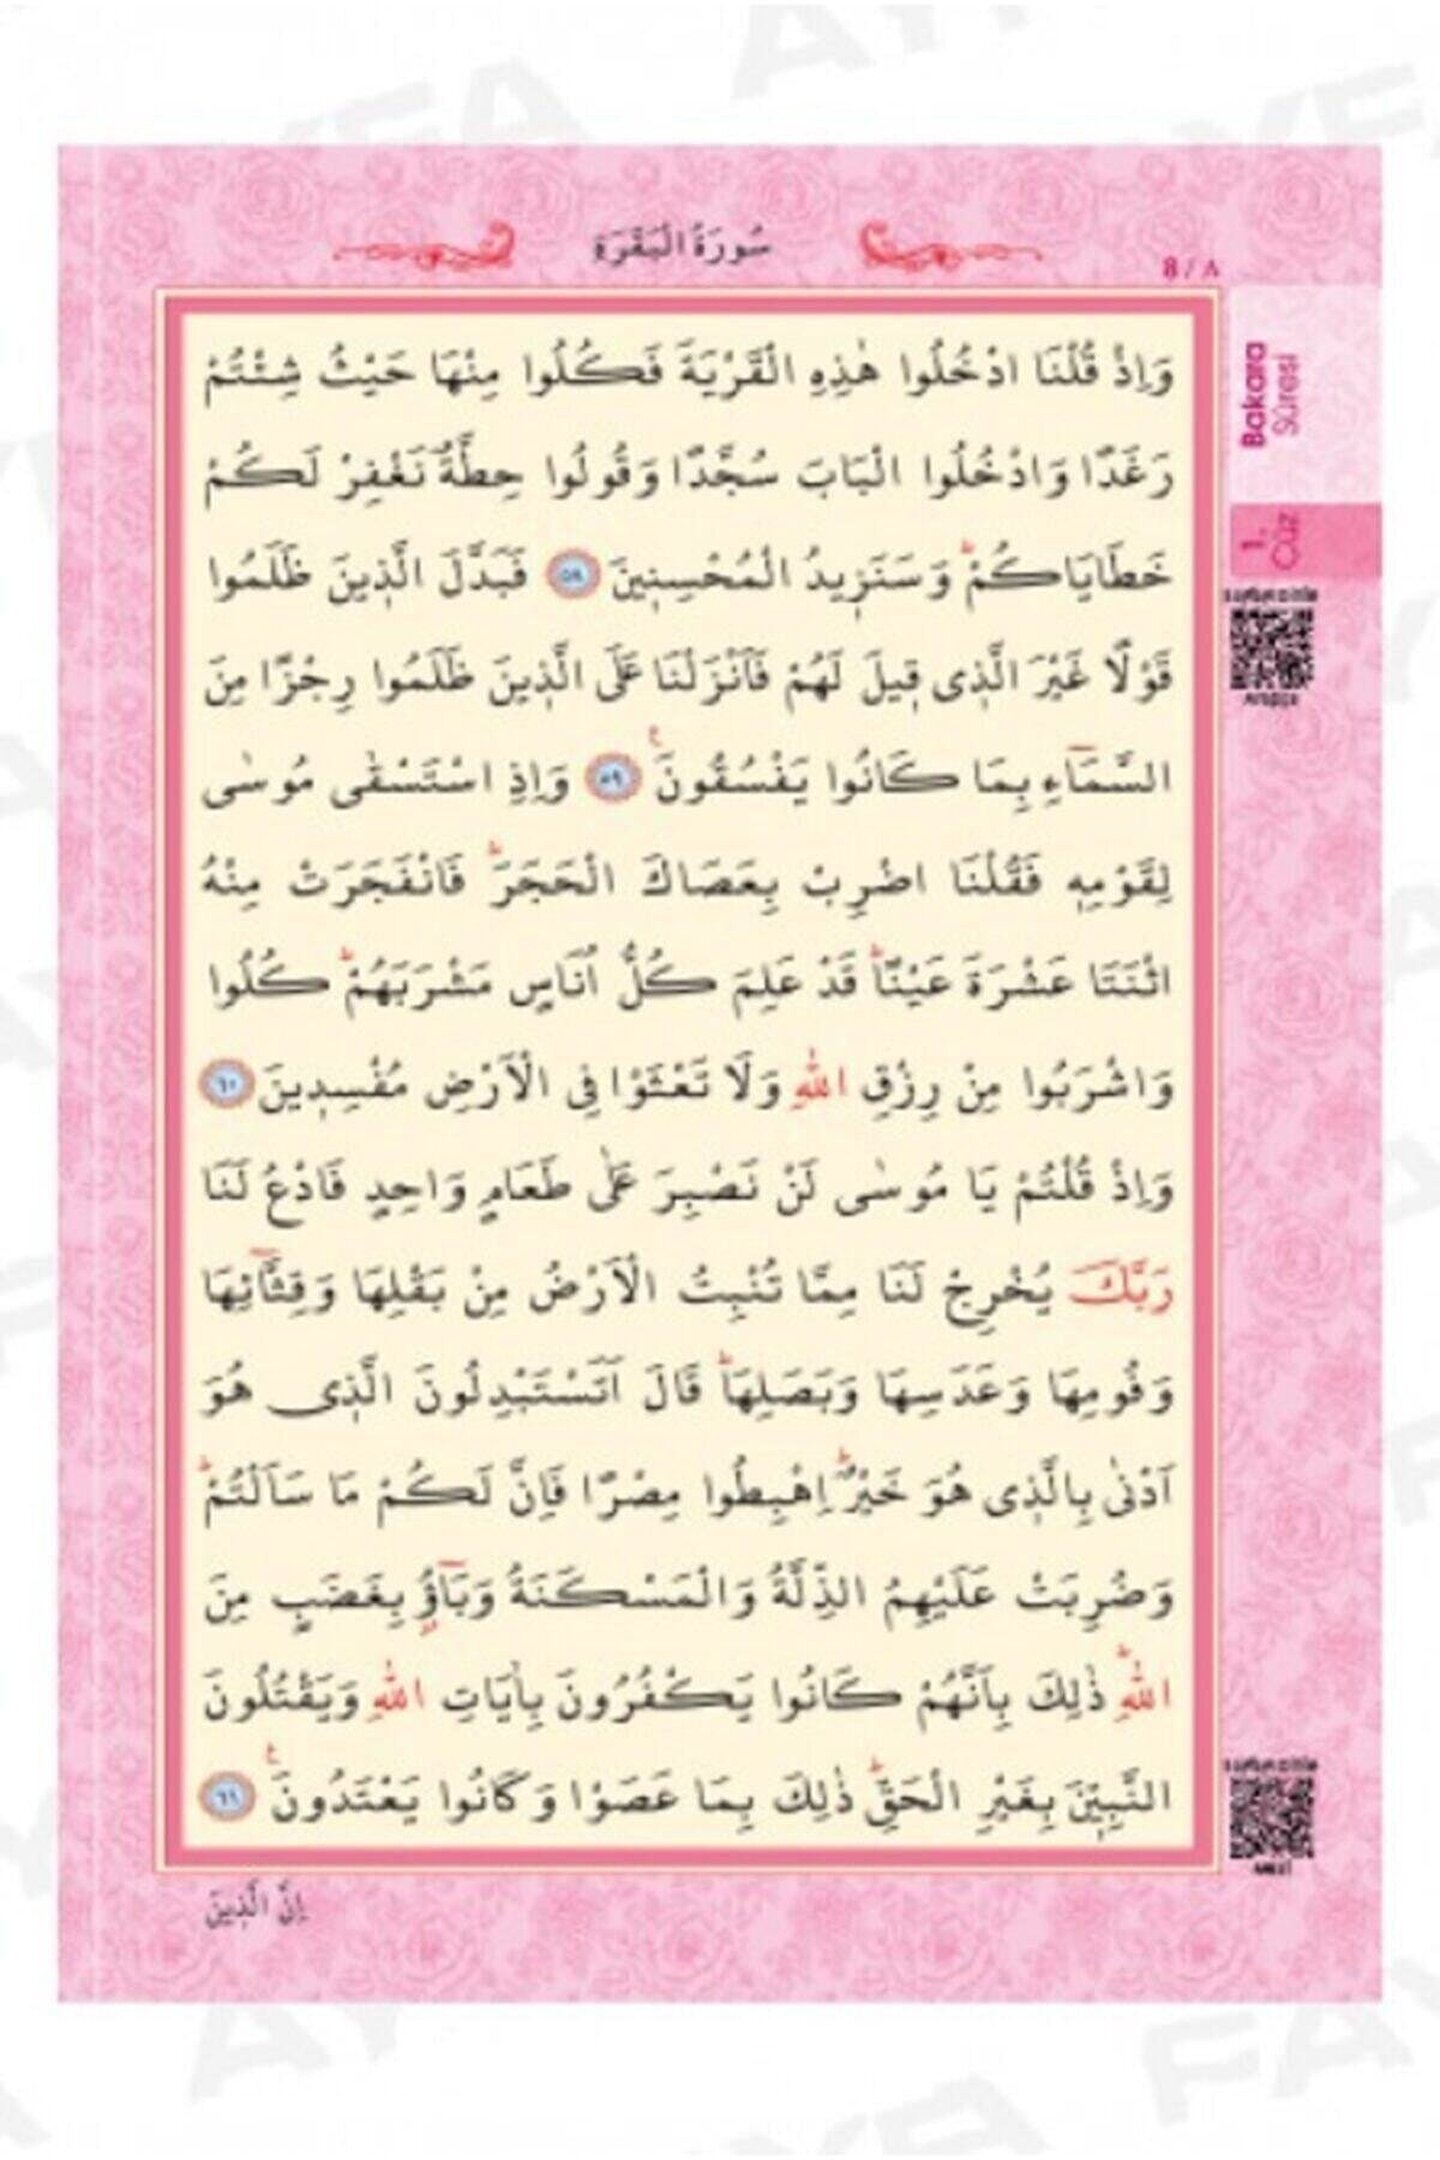 سُورَةُ الْبَقَرَةِ
8 / ٨
Bakara
Sûresi
1.
Cüz
وَاِذْ قُلْنَا ادْخُلُوا هٰذِهِ الْقَرْيَةَ فَكُلُوا مِنْهَا حَيْثُ شِئْتُمْ
رَغَدًا وَادْخُلُوا الْبَابَ سُجَّدًا وَقُولُوا حِطَّةٌ نَغْفِرْ لَكُمْ
خَطَايَاكُمْۜ وَسَنَز۪يدُ الْمُحْسِن۪ينَ ﴿٥٨﴾ فَبَدَّلَ الَّذ۪ينَ ظَلَمُوا
قَوْلًا غَيْرَ الَّذ۪ى ق۪يلَ لَهُمْ فَاَنْزَلْنَا عَلَى الَّذ۪ينَ ظَلَمُوا رِجْزًا مِنَ
السَّمَٓاءِ بِمَا كَانُوا يَفْسُقُونَ۟ ﴿٥٩﴾ وَاِذِ اسْتَسْقٰى مُوسٰى
لِقَوْمِه۪ فَقُلْنَا اضْرِبْ بِعَصَاكَ الْحَجَرَۜ فَانْفَجَرَتْ مِنْهُ
اثْنَتَا عَشْرَةَ عَيْنًاۜ قَدْ عَلِمَ كُلُّ اُنَاسٍ مَشْرَبَهُمْۜ كُلُوا
وَاشْرَبُوا مِنْ رِزْقِ اللّٰهِ وَلَا تَعْثَوْا فِى الْاَرْضِ مُفْسِد۪ينَ ﴿٦٠﴾
وَاِذْ قُلْتُمْ يَا مُوسٰى لَنْ نَصْبِرَ عَلٰى طَعَامٍ وَاحِدٍ فَادْعُ لَنَا
رَبَّكَ يُخْرِجْ لَنَا مِمَّا تُنْبِتُ الْاَرْضُ مِنْ بَقْلِهَا وَقِثَّٓائِهَا
وَفُومِهَا وَعَدَسِهَا وَبَصَلِهَاۜ قَالَ اَتَسْتَبْدِلُونَ الَّذ۪ى هُوَ
اَدْنٰى بِالَّذ۪ى هُوَ خَيْرٌۜ اِهْبِطُوا مِصْرًا فَاِنَّ لَكُمْ مَا سَاَلْتُمْۜ
وَضُرِبَتْ عَلَيْهِمُ الذِّلَّةُ وَالْمَسْكَنَةُ وَبَٓاؤُ۫ بِغَضَبٍ مِنَ
اللّٰهِۜ ذٰلِكَ بِاَنَّهُمْ كَانُوا يَكْفُرُونَ بِاٰيَاتِ اللّٰهِ وَيَقْتُلُونَ
النَّبِيّ۪نَ بِغَيْرِ الْحَقِّۜ ذٰلِكَ بِمَا عَصَوْا وَكَانُوا يَعْتَدُونَ۟ ﴿٦١﴾
اِنَّ الَّذ۪ينَ